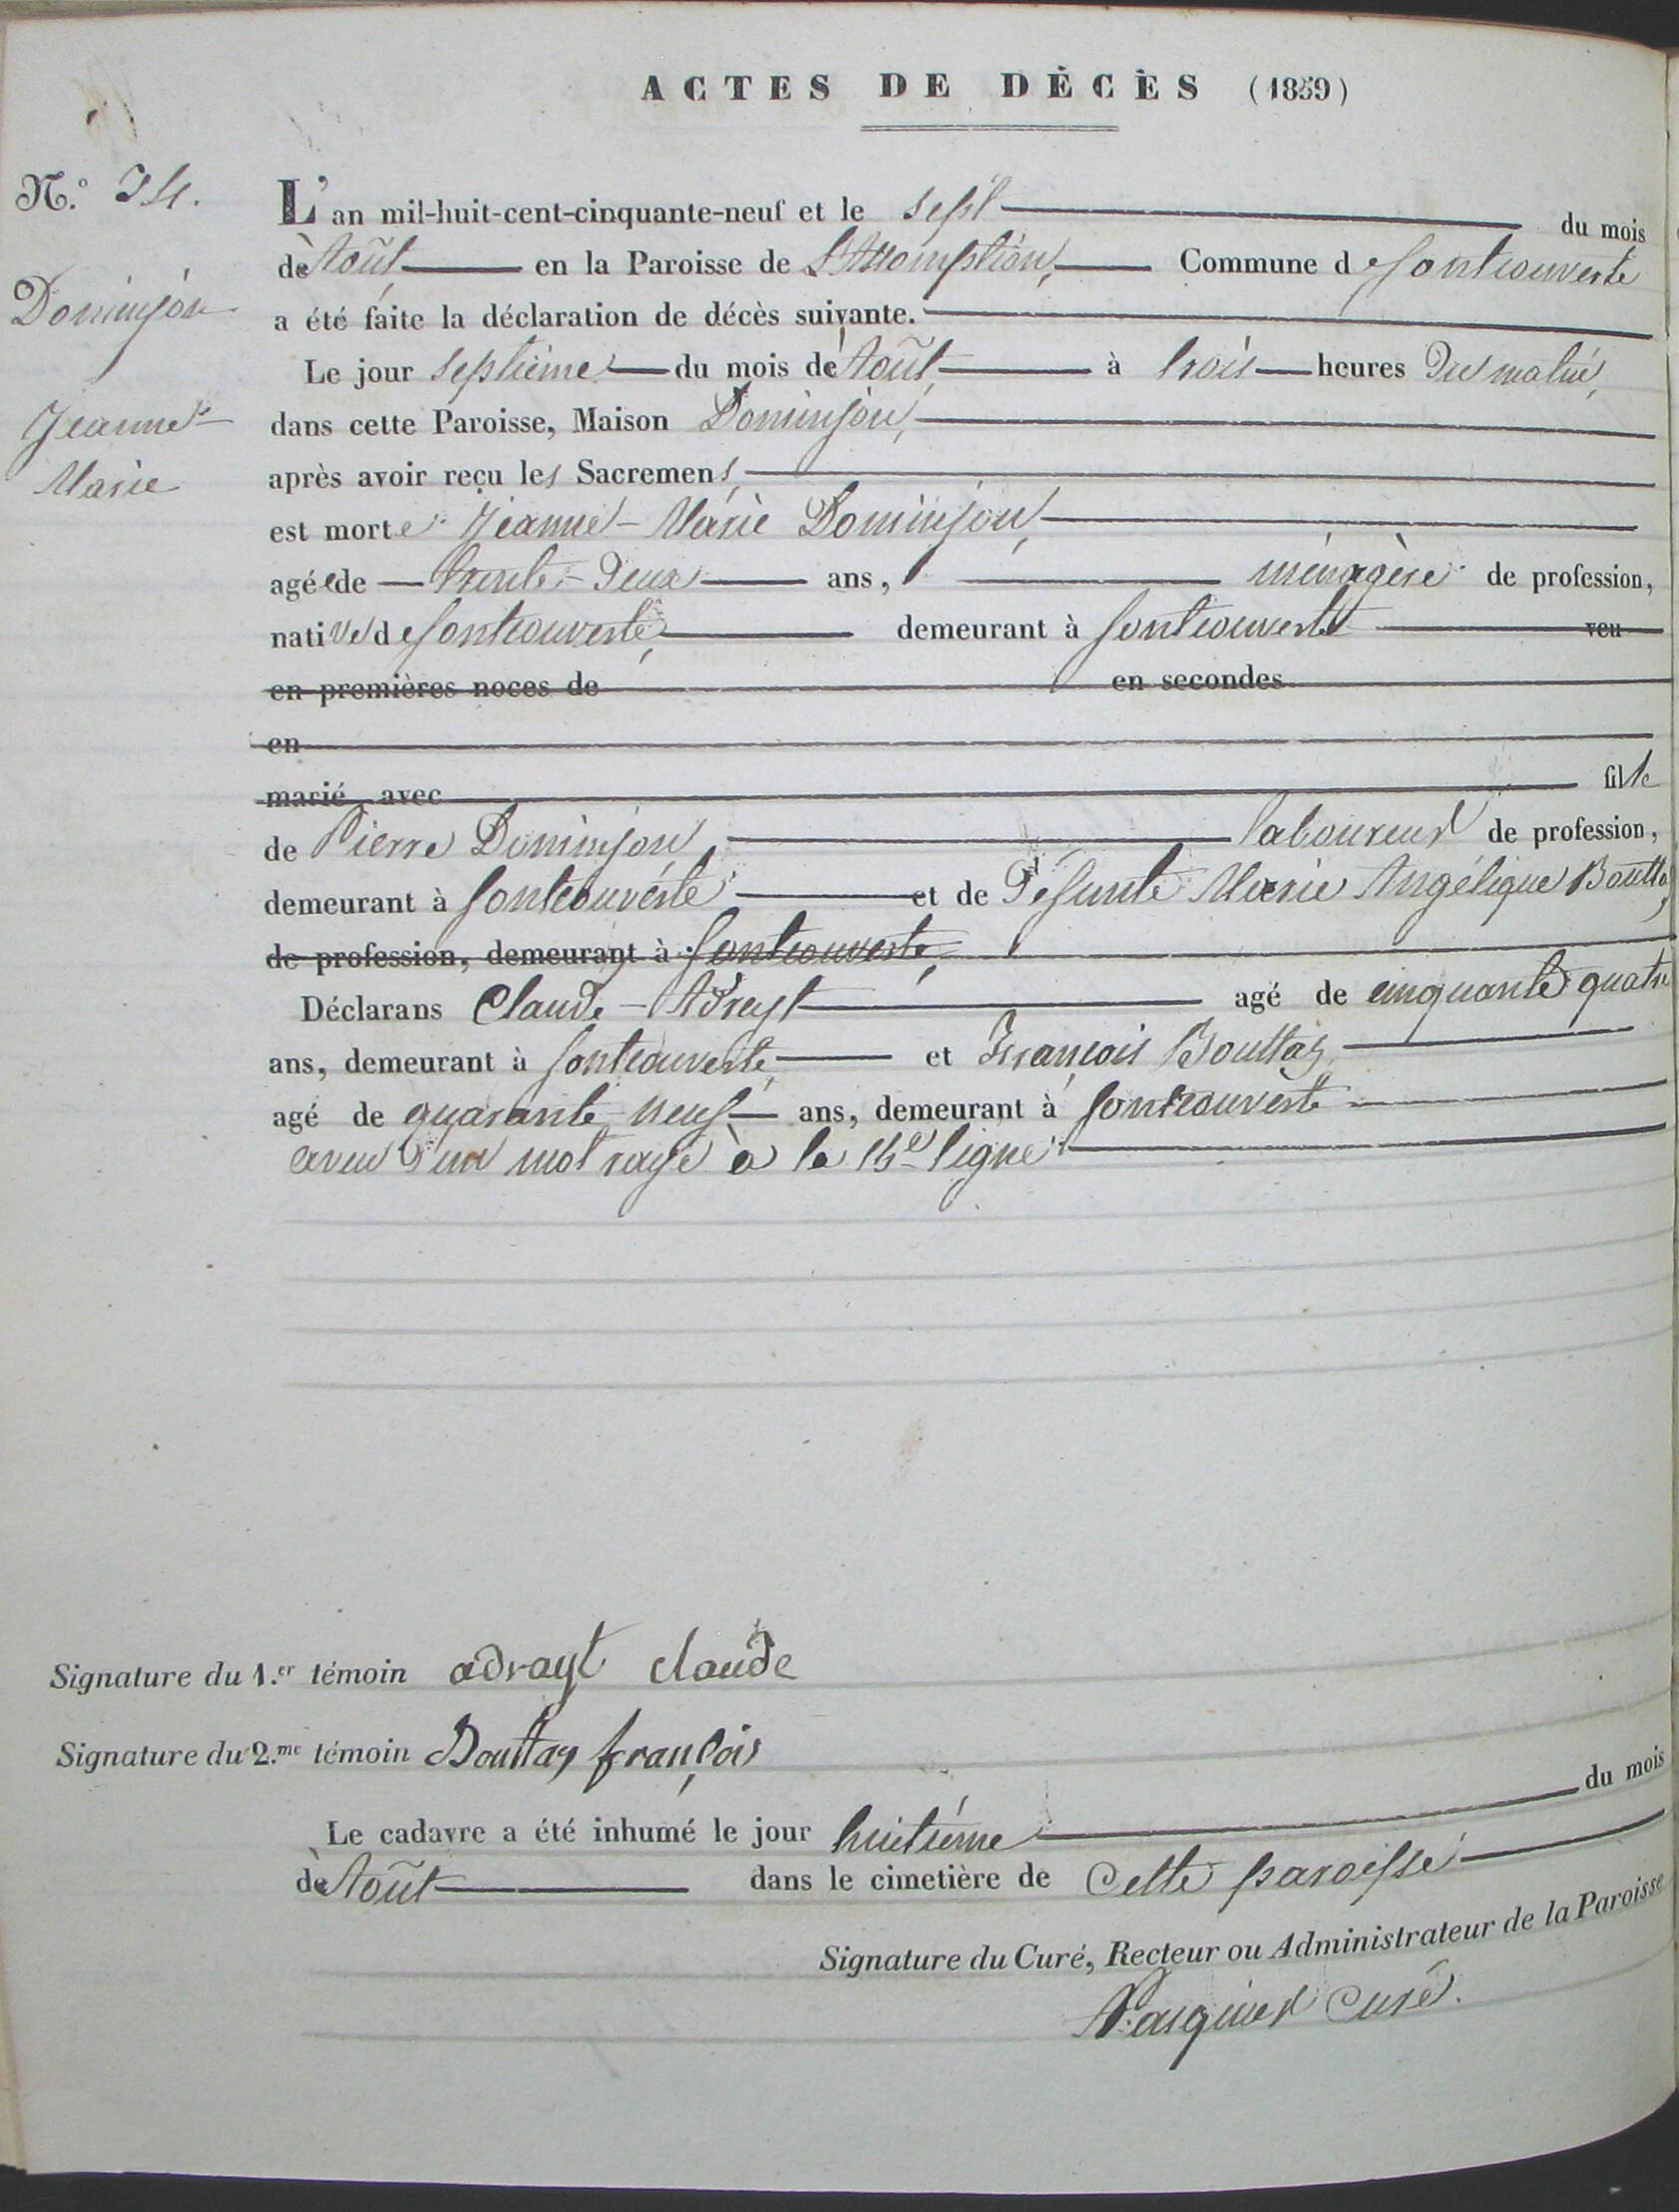 ACTES DE DÉCÈS (1859)
N.º 34.
L'an mil-huit-cent-cinquante-neuf et le sept du mois
d'Août, en la Paroisse de L'Assomption, Commune de fontcouverte
Dominjon
a été faite la déclaration de décès suivante.
Le jour septième du mois d'Août à trois heures Du matin,
Jeanne-
dans cette Paroisse, Maison Dominjon,
Marie
après avoir reçu les Sacremens
est morte Jeanne-Marie Dominjon,
agée de trente-Deux ans, ménagère de profession,
native de fontcouverte, demeurant à fontcouverte veu
en premières noces de en secondes
en
marié avec fille
de Pierre Dominjon laboureur de profession,
demeurant à fontcouverte et de Défunte Marie Angélique Bouttaz,
de profession, demeurant à fontcouverte,
Déclarans Claude-Adrayt agé de cinquante quatre
ans, demeurant à fontcouverte, et François Bouttaz
agé de quarante-neuf ans, demeurant à fontcouverte
aveu D'un mot rayé à la ligne
Signature du 1.er témoin adrayt claude
Signature du 2.me témoin Bouttaz françois
Le cadavre a été inhumé le jour huitième du mois
d'Août dans le cimetière de Cette paroisse
Signature du Curé, Recteur ou Administrateur de la Paroisse
Pasquier Curé.